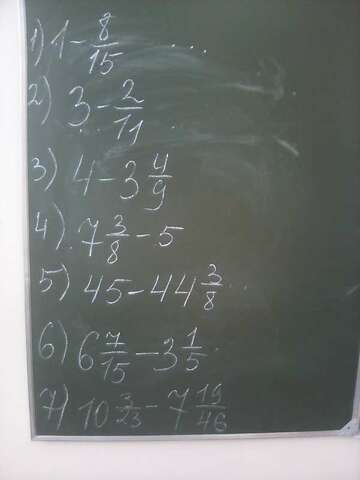 1) 1 - 8/15 ...
2) 3 - 2/11
3) 4 - 3 4/9
4) 7 3/8 - 5
5) 45 - 44 3/8
6) 6 7/15 - 3 1/5
7) 10 3/23 - 7 19/46